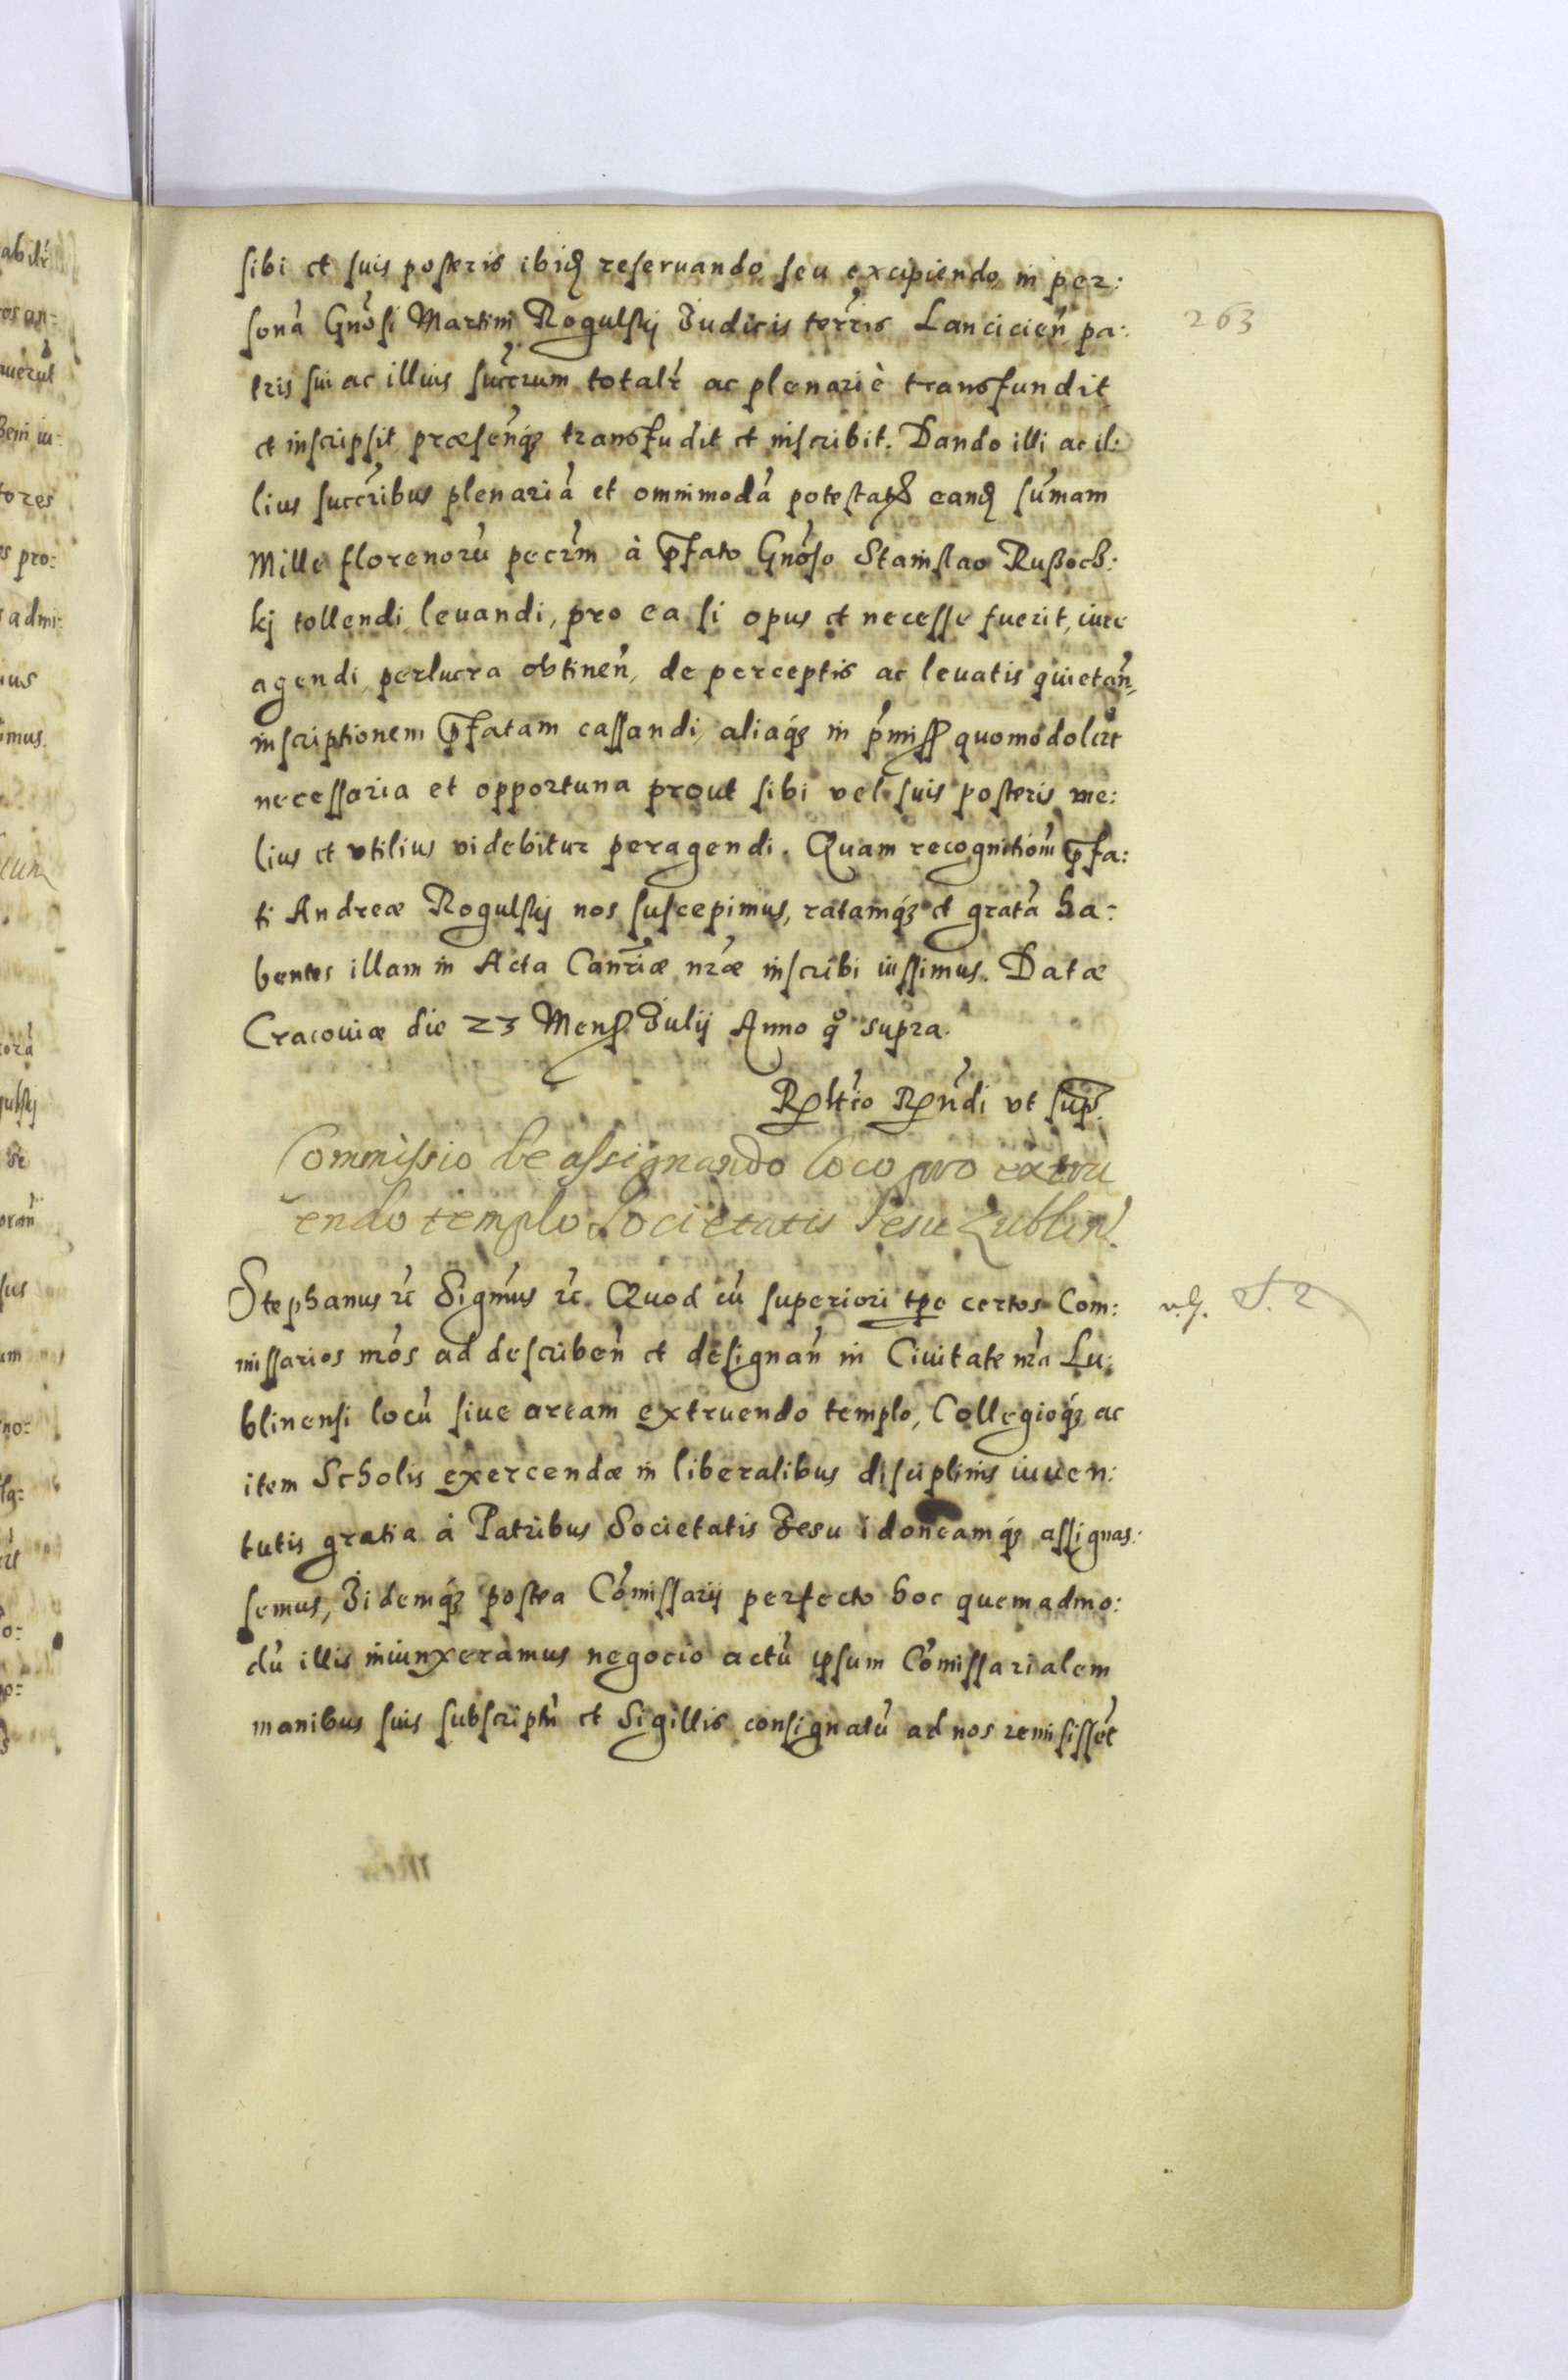 sibi et suis posteris ibid. reseruando seu excipiendo, in per:
sonā Gnōsi Martini Rogulskj Judicis terr̃is Lancicien̄ pa:
tris sui ac illius succrum totalr̄ ac plenariè transfundit
et inscripsit, præsen̄q; transfudit et inscribit. Dando illi ac il:
lius succr̄ibus plenariā et omnimodā potestat. eand. sum̄am
Mille florenorū pecrm̄ à p̄fato Gnōso Stanislao Rußoch:
kj tollendi leuandi, pro ea si opus et necesse fuerit, iure
agendi, perlucra obtinen̄, de perceptis ac leuatis quietan̄,
inscriptionem p̄fatam cassandi, aliaq; in p̄miss. quomodolr̄t
necessaria et opportuna prout sibi vel suis posteris me:
lius et vtilius videbitur peragendi. Quam recognitiom̄ p̄fa:
ti Andreæ Rogulskj nos suscepimus, ratamq; et gratā ha:
bentes illam in Acta Canr̄iæ nr̄æ inscribi iussimus. Datæ
Cracouiæ die 23 Mens. Julij Anno q̊ supra.
Rltio Rn̄di vt sup̄.
Commissio de assignando loco pro extru
endo templo Societatis Jesu Lublin̄.
263
Stephanus rc̄ Signm̄us rc̄. Quod cū superiori tp̄e certos Com:
missarios nr̄os ad describen̄ et designan̄ in Ciuitate nr̄a Lu:
blinensi locū siue aream extruendo templo, Collegioq; ac
item Scholis exercendæ in liberalibus disciplinis iuuen:
tutis gratia à Patribus Societatis Jesu idoneamq; assignas:
semus, Jidemq; postea Com̄issarij perfecto hoc quemadmo:
dū illis iniunxeramus negocio actū ipsum Com̄issarialem
manibus suis subscriptū et Sigillis consignatū ad nos remisissēt